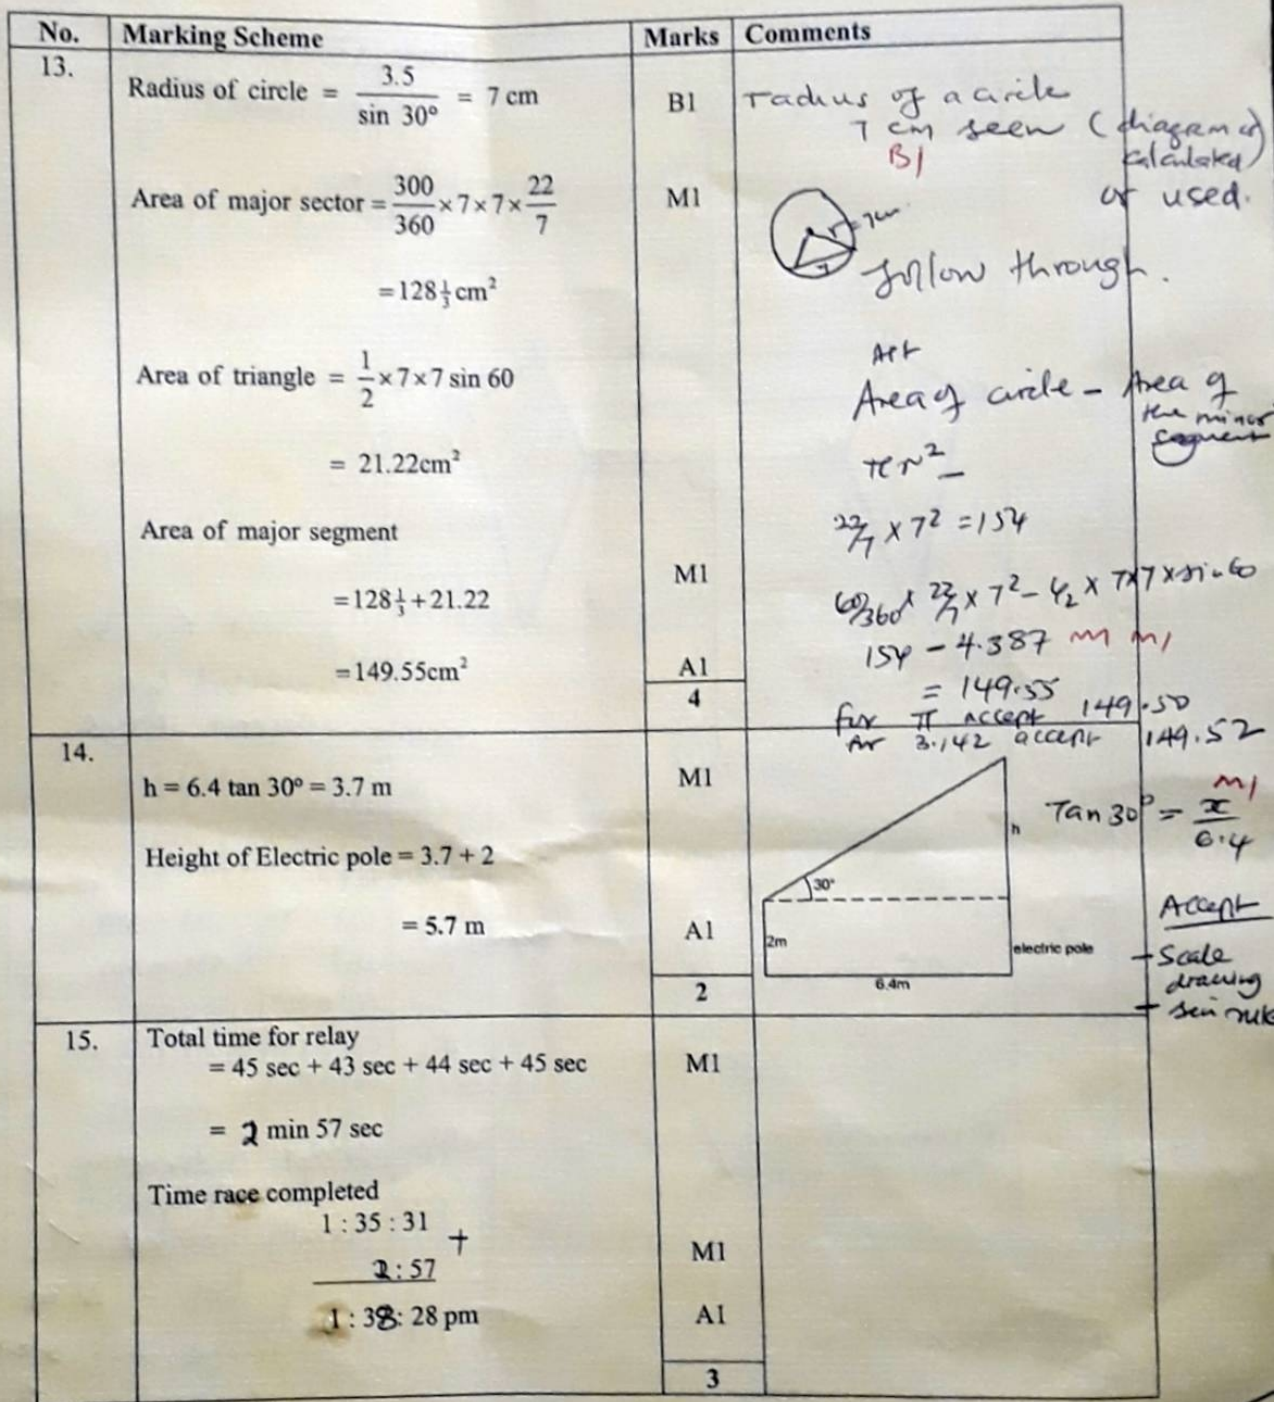 No. Marking Scheme Marks Comments
13.
Radius of circle = 3.5 / sin 30° = 7 cm B1
radius of a circle
7 cm seen (diagram or
calculated)
B1
or used.
Area of major sector = 300/360 × 7 × 7 × 22/7 M1
r = 7cm
7
follow through.
= 128 1/3 cm²
Area of triangle = 1/2 × 7 × 7 sin 60
= 21.22cm²
Area of circle - Area of
the minor
segment
πr² -
22/7 × 7² = 154
Area of major segment
M1
= 128 1/3 + 21.22
60/360 × 22/7 × 7² - 1/2 × 7×7×sin 60
154 - 4.387 M1 M1
= 149.55cm² A1
= 149.55
4
for π accept 149.50
for 3.142 accept 149.52
14.
h = 6.4 tan 30° = 3.7 m M1
h
Tan 30° = x/6.4 M1
Height of Electric pole = 3.7 + 2
30°
= 5.7 m A1
2m
electric pole
6.4m
Accept
- Scale
drawing
- sin rule
2
15. Total time for relay
= 45 sec + 43 sec + 44 sec + 45 sec M1
= 2 min 57 sec
Time race completed
1 : 35 : 31 +
2 : 57 M1
1 : 38 : 28 pm A1
3